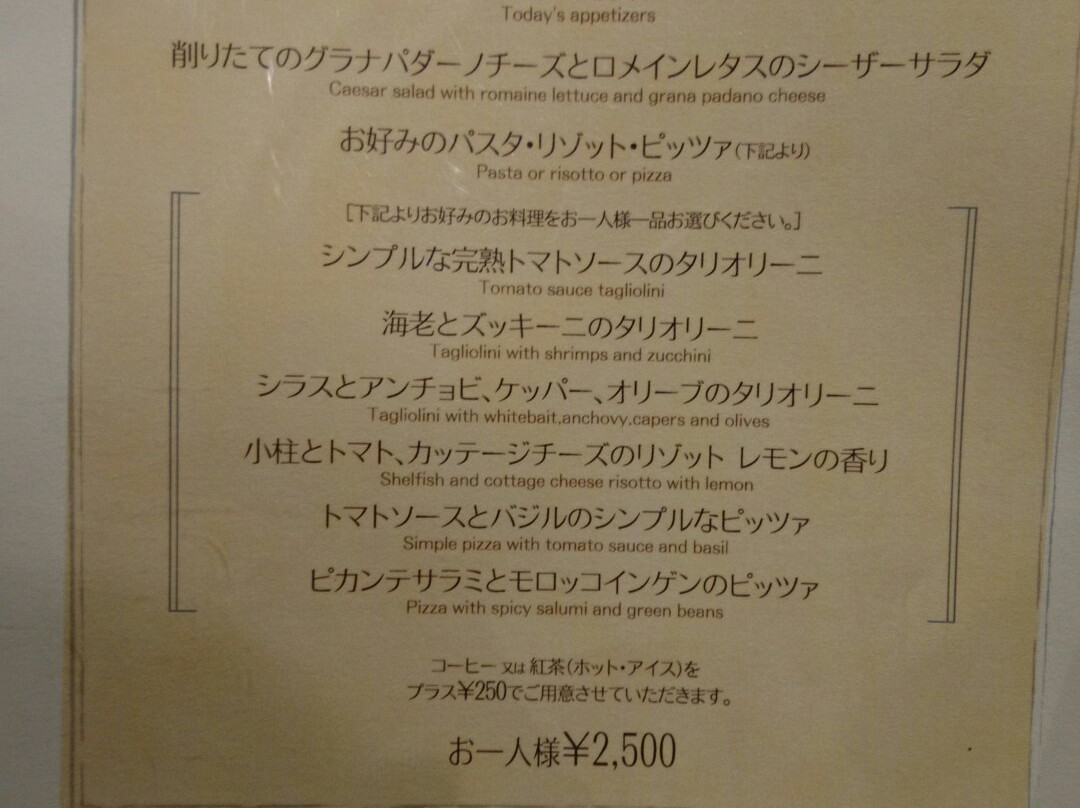 Today's appetizers
削りたてのグラナパダーノチーズとロメインレタスのシーザーサラダ
Caesar salad with romaine lettuce and grana padano cheese
お好みのパスタ・リゾット・ピッツァ(下記より)
Pasta or risotto or pizza
[下記よりお好みのお料理をお一人様一品お選びください。]
シンプルな完熟トマトソースのタリオリーニ
Tomato sauce tagliolini
海老とズッキーニのタリオリーニ
Tagliolini with shrimps and zucchini
シラスとアンチョビ、ケッパー、オリーブのタリオリーニ
Tagliolini with whitebait,anchovy,capers and olives
小柱とトマト、カッテージチーズのリゾット レモンの香り
Shelfish and cottage cheese risotto with lemon
トマトソースとバジルのシンプルなピッツァ
Simple pizza with tomato sauce and basil
ピカンテサラミとモロッコインゲンのピッツァ
Pizza with spicy salumi and green beans
コーヒー 又は 紅茶(ホット・アイス)を
プラス¥250でご用意させていただきます。
お一人様¥2,500